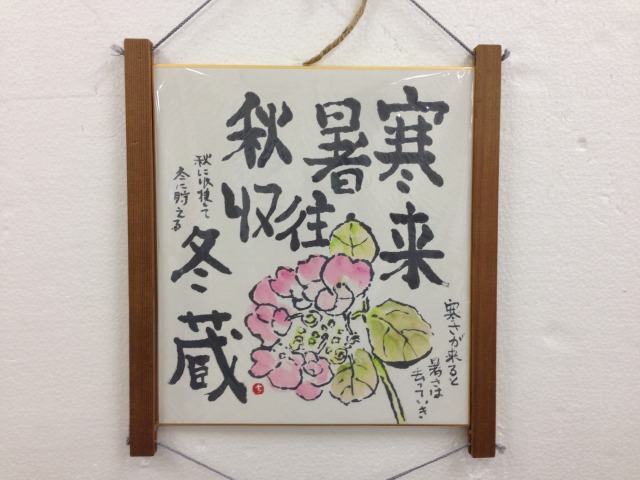 寒来
暑往
秋収
冬蔵
寒さが来ると
暑さは
去っていき
秋に収穫して
冬に貯える